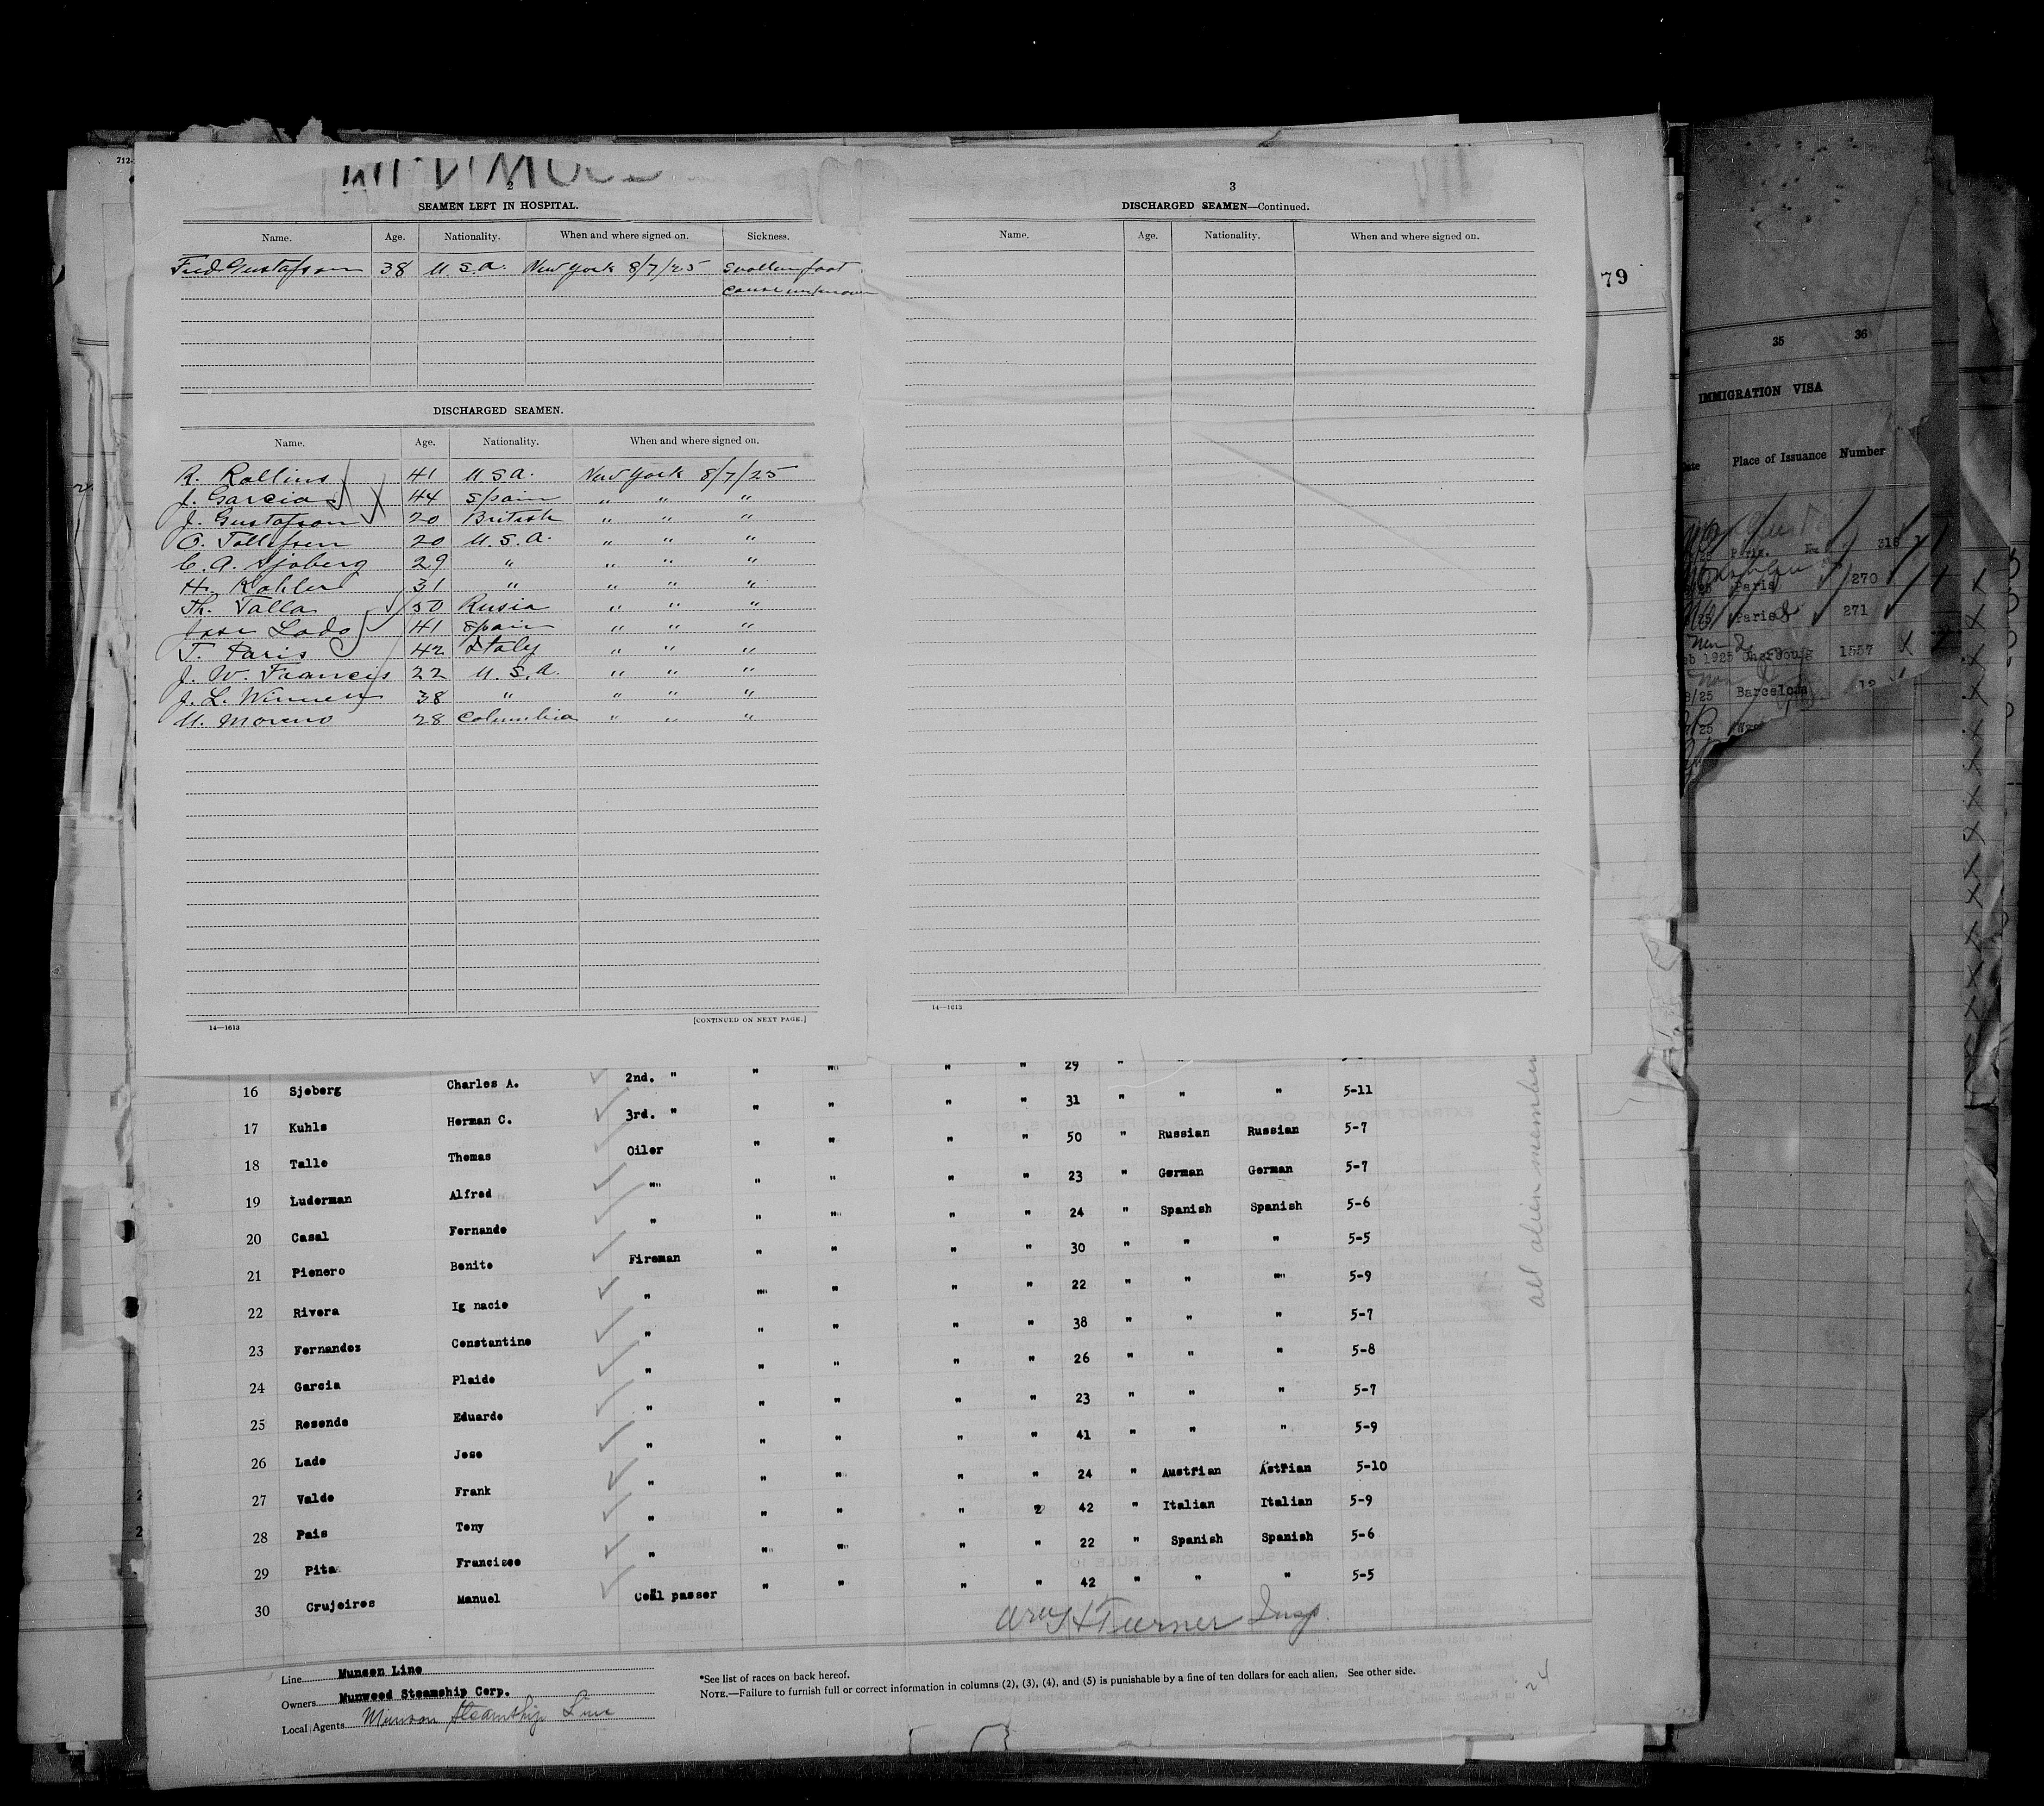 712-
2
SEAMEN LEFT IN HOSPITAL.
Name. Age. Nationality. When and where signed on. Sickness.
Fred Gustafson 38 U.S.A. New York 8/7/25 Swollen foot
Cause unknown
DISCHARGED SEAMEN.
Name. Age. Nationality. When and where signed on.
R. Rollins 41 U.S.A. New York 8/7/25
J. Garcia 44 Spain " " "
J. Gustafson 20 British " " "
O. Tollefsen 20 U.S.A. " " "
C. A. Sjoberg 29 " " " "
H. Kohler 31 " " " "
Th. Talla 50 Rusia " " "
Jose Lado 41 Spain " " "
T. Paris 42 Italy " " "
J. W. Francis 22 U.S.A. " " "
J. L. 38 " " " "
M. Moreno 28 Columbia " " "
14—1613
[CONTINUED ON NEXT PAGE.]
3
DISCHARGED SEAMEN—Continued.
Name. Age. Nationality. When and where signed on.
14—1613
79
35 36
IMMIGRATION VISA
Date Place of Issuance Number
Paris. 318
Paris 270
Paris 271
1925 Cherbourg 1557
9/25 Barcelona
/25
29 "
16 Sjeberg Charles A. 2nd. " " " " " 31 " " " 5-11
17 Kuhls Herman C. 3rd. " " " " " 50 " Russian Russian 5-7
18 Talle Thomas Oiler " " " " 23 " German German 5-7
19 Luderman Alfred " " " " " 24 " Spanish Spanish 5-6
20 Casal Fernando " " " " " 30 " " " 5-5
21 Pienero Benito Fireman " " " " 22 " " " 5-9
22 Rivera Ig nacio " " " " " 38 " " " 5-7
23 Fernandez Constantine " " " " " 26 " " " 5-8
24 Garcia Plaide " " " " " 23 " " " 5-7
25 Resende Eduardo " " " " " 41 " " " 5-9
26 Lade Jose " " " " " 24 " Austrian Astrian 5-10
27 Valde Frank " " " " 2 42 " Italian Italian 5-9
28 Pais Teny " " " " " 22 " Spanish Spanish 5-6
29 Pita Francisco " " " " " 42 " " " 5-5
30 Crujeires Manuel Coal passer
all alien members
Wm H Turner Insp.
Line Munson Line
Owners Munwood Steamship Corp.
Local Agents Munson Steamship Line
*See list of races on back hereof.
NOTE.—Failure to furnish full or correct information in columns (2), (3), (4), and (5) is punishable by a fine of ten dollars for each alien. See other side.
24